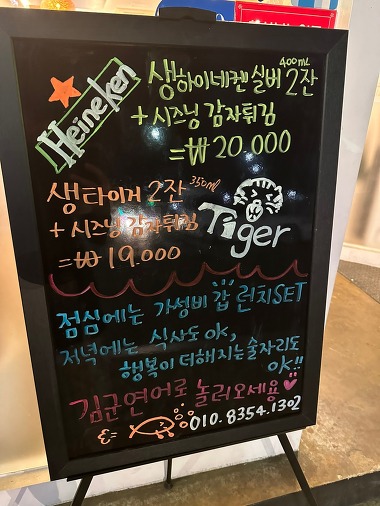 Heineken
생하이네켄 실버 2잔
400mL
+ 시즈닝 감자튀김
= ₩ 20.000
생타이거 2잔 350ml
+ 시즈닝 감자튀김
= ₩ 19.000
Tiger
점심에는 가성비 갑 런치SET
저녁에는 식사도 ok,
행복이 더해지는 술자리도
ok!!
김군연어로 놀러오세용
010.8354.1302